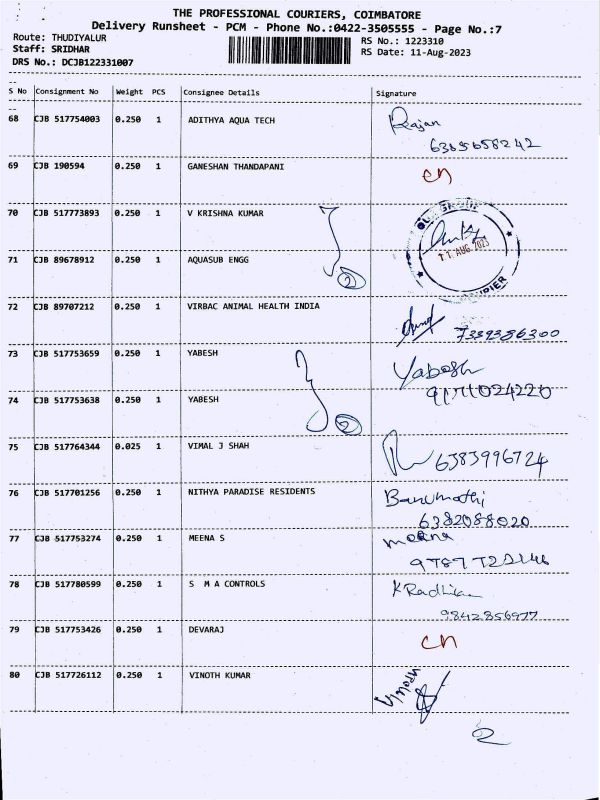 THE PROFESSIONAL COURIERS, COIMBATORE
Delivery Runsheet - PCM - Phone No.:0422-3505555 - Page No.:7
Route: THUDIYALUR RS No.: 1223310
Staff: SRIDHAR RS Date: 11-Aug-2023
DRS No.: DCJB122331007
S No Consignment No Weight PCS Consignee Details Signature
68 CJB 517754003 0.250 1 ADITHYA AQUA TECH Rajan
6385658242
69 CJB 190594 0.250 1 GANESHAN THANDAPANI cn
70 CJB 517773893 0.250 1 V KRISHNA KUMAR
11 AUG 2023
71 CJB 89678912 0.250 1 AQUASUB ENGG 2
72 CJB 89707212 0.250 1 VIRBAC ANIMAL HEALTH INDIA
7339386300
73 CJB 517753659 0.250 1 YABESH Yabesh
9171024220
74 CJB 517753638 0.250 1 YABESH 2
75 CJB 517764344 0.025 1 VIMAL J SHAH 6383996724
76 CJB 517701256 0.250 1 NITHYA PARADISE RESIDENTS Banumathi
6382088020
77 CJB 517753274 0.250 1 MEENA S meena
78 CJB 517780599 0.250 1 S M A CONTROLS K Radhika
9842856977
79 CJB 517753426 0.250 1 DEVARAJ cn
80 CJB 517726112 0.250 1 VINOTH KUMAR Vinoth
2